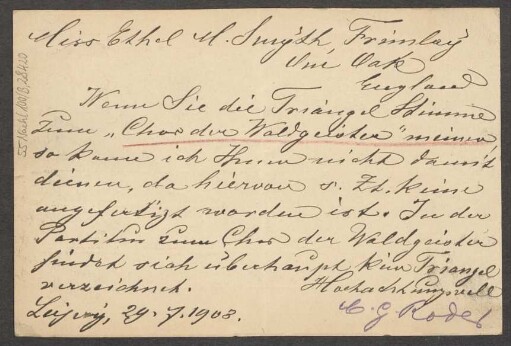 Miss Ethel M. Smyth, Frimley
Oak
England
Wenn Sie die Triangel Stimme
zum „Chor der Waldgeister" meinen,
so kann ich Ihnen nicht damit
dienen, da hiervon s. Zt. keine
angefertigt worden ist. In der
Partitur zum Chor der Waldgeister
findet sich überhaupt kein Triangel
verzeichnet. Hochachtungsvoll
Leipzig, 29.7.1903. C. G. Röder
55 Nachl 100/B,